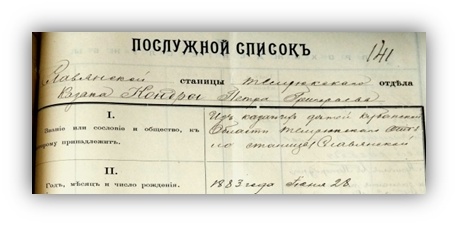 ПОСЛУЖНОЙ СПИСОКЪ
141
Славянской станицы Темрюкского отдѣла
Козака Кондры Петра Григорьева
I.
Званіе или сословіе и общество, къ которому принадлежитъ.
Изъ казачьихъ дѣтей Кубанской
Области Темрюкского отдѣла
станицы Славянской
II.
Годъ, мѣсяцъ и число рожденія.
1883 года Іюня 28.